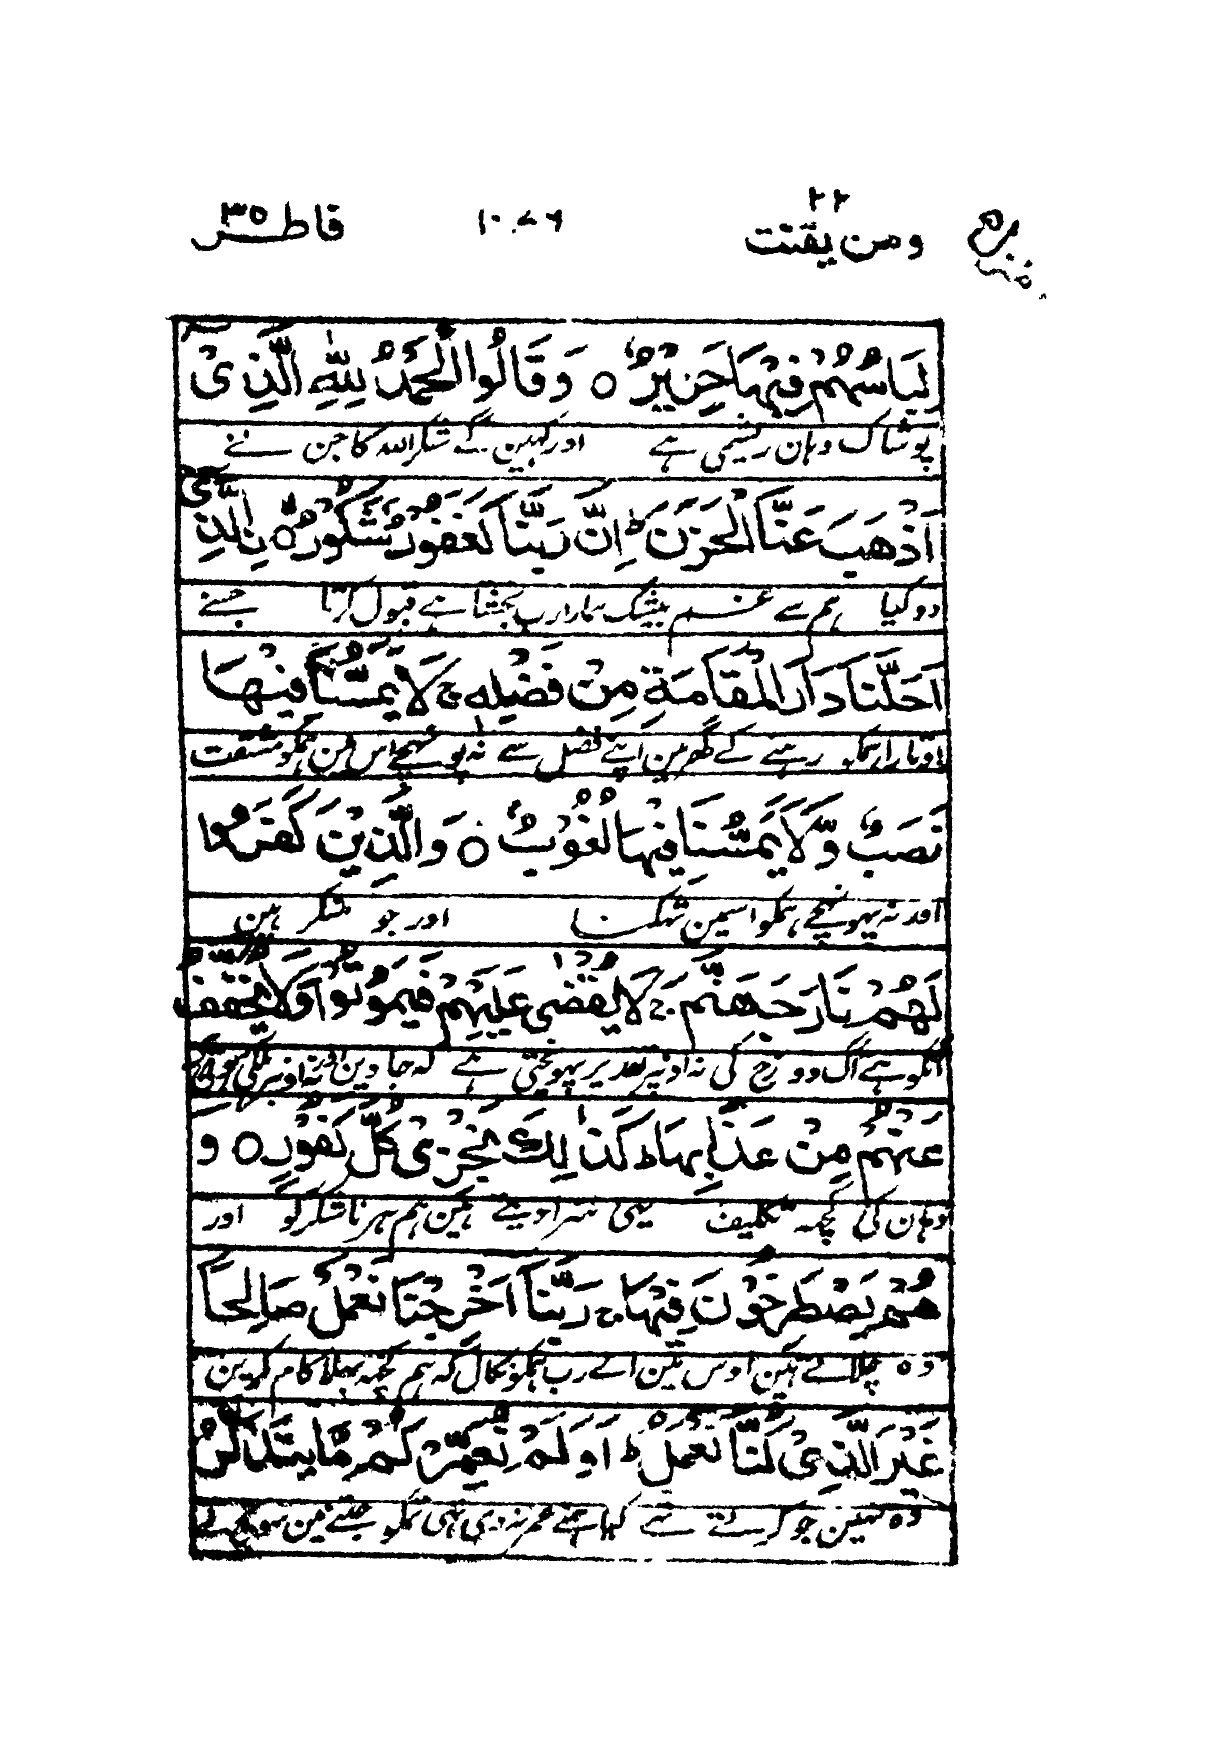 ومن یقنت ۲۲ ۱۰۷۶ فاطر ۳۵
لِبَاسُهُمْ فِيْهَا حَرِيْرٌ ○ وَقَالُوا الْحَمْدُ لِلّٰهِ الَّذِىْٓ
پوشاک وہان ریشمی ہے اور کہین گے شکر اللہ کا جن نے
اَذْهَبَ عَنَّا الْحَزَنَ ؕ اِنَّ رَبَّنَا لَغَفُوْرٌ شَكُوْرُ ○ نِ الَّذِىْٓ
دور کیا ہم سے غم بیشک ہمارا رب بخشتا ہے قبول کرتا جسنے
اَحَلَّنَا دَارَ الْمُقَامَةِ مِنْ فَضْلِهٖ ج لَا يَمَسُّنَا فِيْهَا
اوتارا ہمکو رہنے کے گھر مین اپنے فضل سے نہ پہونچے اس مین ہمکو مشقت
نَصَبٌ وَّلَا يَمَسُّنَا فِيْهَا لُغُوْبٌ ○ وَالَّذِيْنَ كَفَرُوْا
اور نہ پہونچے ہمکو اسمین تھکنا اور جو منکر ہین
لَهُمْ نَارُ جَهَنَّمَ ج لَا يُقْضٰى عَلَيْهِمْ فَيَمُوْتُوْا وَلَا يُخَفَّفُ
انکو ہے آگ دوزخ کی نہ اونپر تقدیر پہونچتی ہے کہ مر جاوین اور نہ اونپر ہلکی ہوتی
عَنْهُمْ مِّنْ عَذَابِهَا ؕ كَذٰلِكَ نَجْزِىْ كُلَّ كَفُوْرٍ ○ وَ
وہان کی کچھ تکلیف یہی سزا دیتے ہین ہم ہر ناشکر کو اور
هُمْ يَصْطَرِخُوْنَ فِيْهَا ج رَبَّنَآ اَخْرِجْنَا نَعْمَلْ صَالِحًا
وہ چلاتے ہین اوس مین اے رب ہمکو نکال کہ ہم کچھ بھلا کام کرین
غَيْرَ الَّذِىْ كُنَّا نَعْمَلُ ؕ اَوَلَمْ نُعَمِّرْكُمْ مَّا يَتَذَكَّرُ
وہ نہین جو کرتے تھے کیا ہمنے عمر نہ دی تھی تمکو جتنے مین سوچ لے